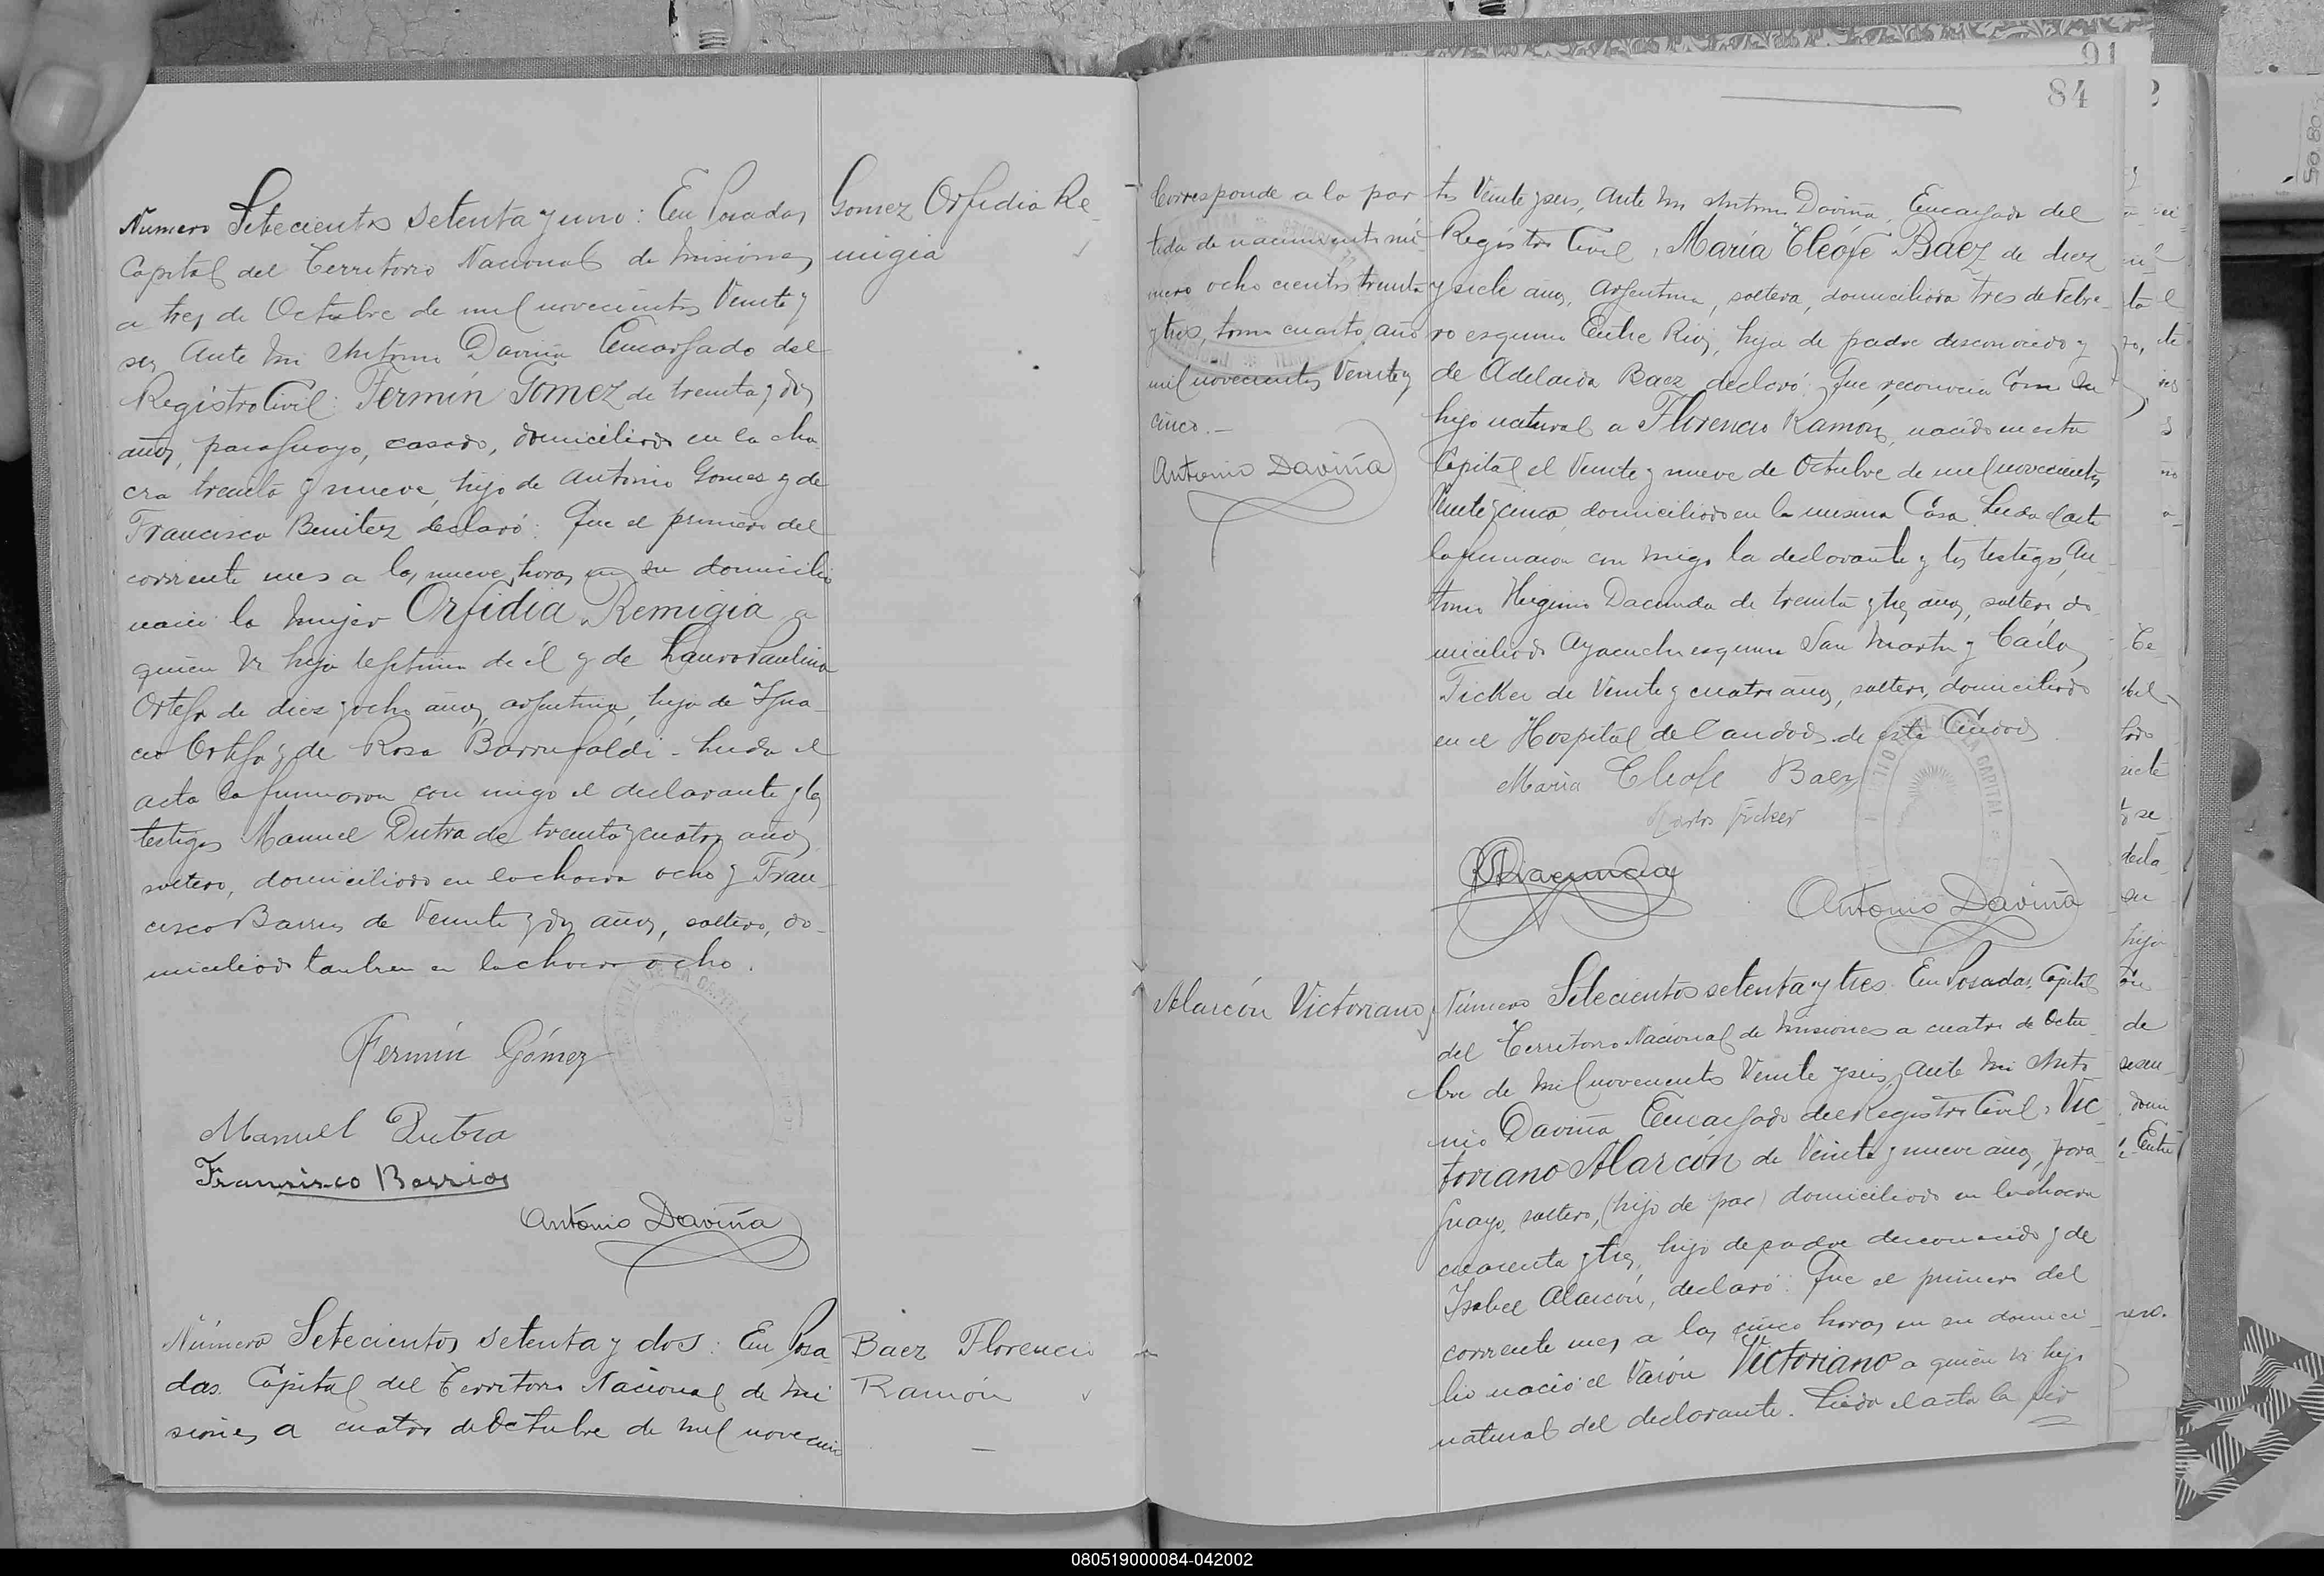 Numero Setecientos setenta y uno: En Posadas
Capital del Territorio Nacional de Misiones
a tres de Octubre de mil novecientos Veinte y
seis, Ante mi Antonio Daviña Encargado del
Registro Civil: Fermín Gomez de treinta y dos
años, paraguayo, casado, domiciliado en la cha-
cra treinta y nueve, hijo de Antonio Gomes y de
Francisca Benitez declaró: Que el primero del
corriente mes a las nueve horas en su domicilio
nació la mujer Orfidia Remigia a
quien vi hija legítima de él y de Laura Paulina
Ortega de diez y ocho años, argentina, hija de Igna-
cio Ortega y de Rosa Barrufaldi - Leida el
acta la firmaron con migo el declarante y los
testigos Manuel Dutra de treinta y cuatro años
soltero, domiciliado en la chacra ocho y Fran-
cisco Barrios de Veinte y dos años, soltero, do-
miciliado tambien en la chacra ocho.
Fermín Gómez
Manuel Dutra
Francisco Barrios
Antonio Daviña
Gomez Orfidia Re-
migia
Número Setecientos setenta y dos: En Posa-
das Capital del Territorio Nacional de Mi-
siones a cuatro de Octubre de mil novecien
Baez Florencio
Ramón
91
84
Corresponde a la par-
tida de nacimiento nú-
mero ocho cientos treinta
y tres, tomo cuarto, año
mil novecientos Veinte y
cinco.-
Antonio Daviña
tos Veinte y seis, Ante mi Antonio Daviña, Encargado del
Registro Civil, María Cleófe Baez de diez
y siete años, Argentina, soltera, domiciliada tres de Febre-
ro esquina Entre Rios, hija de padre desconocido y
de Adelaida Baez declaró: Que reconocia como su
hijo natural a Florencio Ramón, nacido en esta
Capital el Veinte y nueve de Octubre de mil novecientos
Veinte y cinco, domiciliado en la misma Casa. Leida el acta
la firmaron con migo la declarante y los testigos, An-
tonio Higinio Dacunda de treinta y tres años, soltero, do-
miciliado Ayacucho esquina San Martin y Carlos
Ficker de Veinte y cuatro años, soltero, domiciliado
en el Hospital de Caridad de esta Ciudad
Maria Cleofe Baez
Carlos Ficker
Antonio Daviña
Alarcón Victoriano
Número Setecientos setenta y tres. En Posadas, Capital
del Territorio Nacional de Misiones a cuatro de Octu-
bre de mil novecientos Veinte y seis, Ante mi Anto-
nio Daviña Encargado del Registro Civil, Vic-
toriano Alarcón de Veinte y nueve años, para-
guayo, soltero, (hijo de par) domiciliado en la chacra
cuarenta y tres, hijo de padre desconocido y de
Isabel Alarcón, declaró: Que el primero del
corriente mes a las cinco horas en su domici-
lio nació el Varón Victoriano a quien vi hijo
natural del declarante. Leida el acta la fir
080519000084-042002